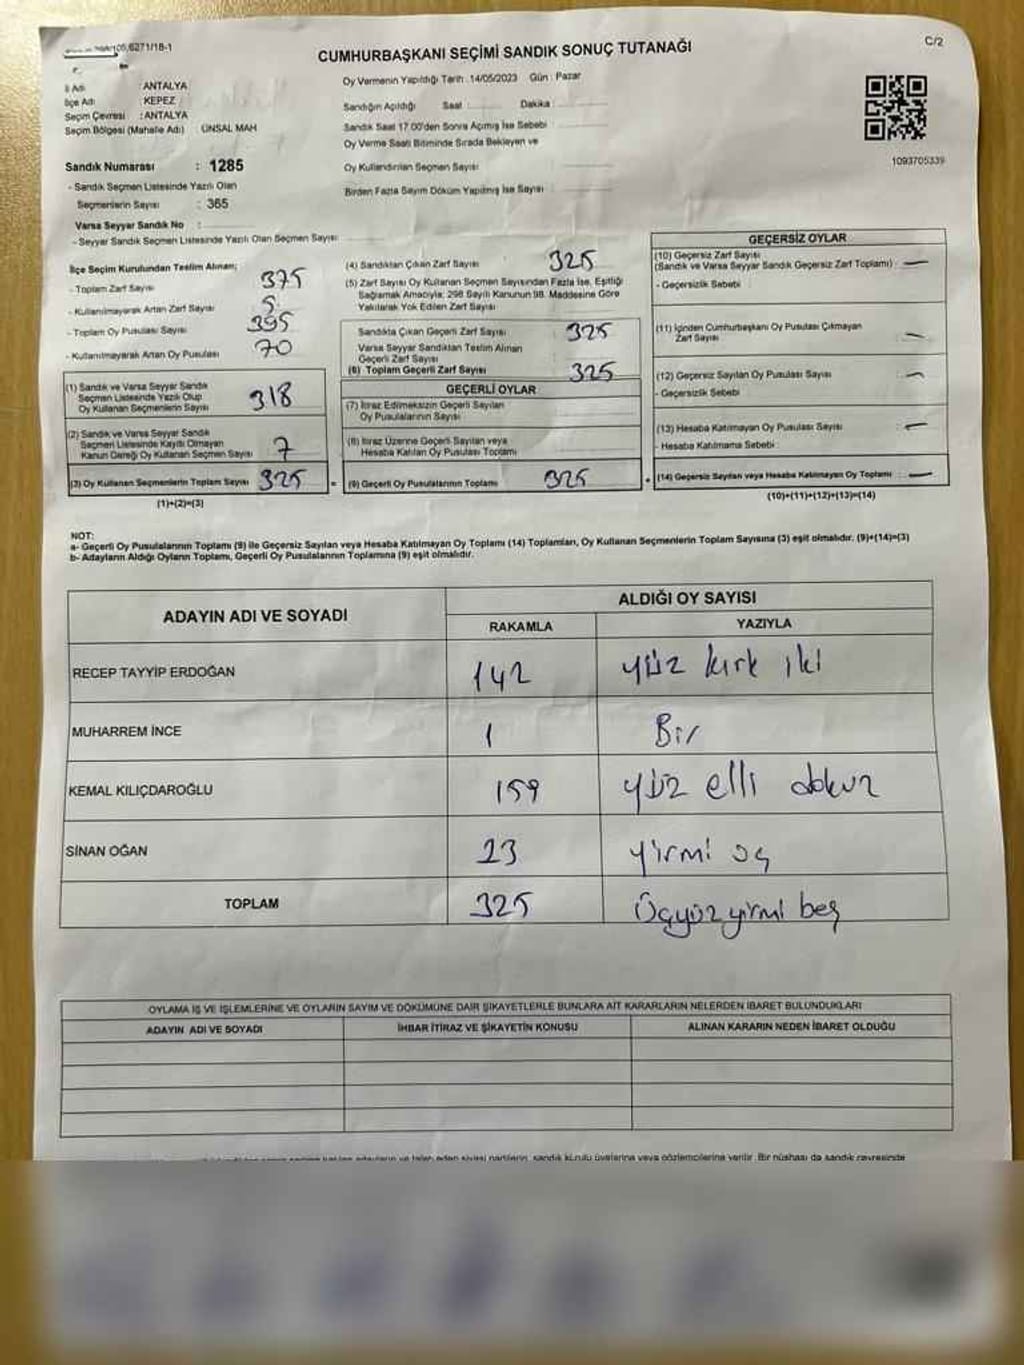 CUMHURBAŞKANI SEÇİMİ SANDIK SONUÇ TUTANAĞI
C/2
İl Adı : ANTALYA
İlçe Adı : KEPEZ
Seçim Çevresi : ANTALYA
Seçim Bölgesi (Mahalle Adı) : ÜNSAL MAH
Sandık Numarası : 1285
- Sandık Seçmen Listesinde Yazılı Olan
Seçmenlerin Sayısı : 365
Varsa Seyyar Sandık No :
- Seyyar Sandık Seçmen Listesinde Yazılı Olan Seçmen Sayısı:
Oy Vermenin Yapıldığı Tarih : 14/05/2023 Gün : Pazar
Sandığın Açıldığı Saat : Dakika :
Sandık Saat 17.00'den Sonra Açılmış İse Sebebi :
Oy Verme Saati Bitiminde Sırada Bekleyen ve
Oy Kullandırılan Seçmen Sayısı :
Birden Fazla Sayım Döküm Yapılmış İse Sayısı :
1093705339
İlçe Seçim Kurulundan Teslim Alınan;
- Toplam Zarf Sayısı : 375
- Kullanılmayarak Artan Zarf Sayısı :
- Toplam Oy Pusulası Sayısı : 395
- Kullanılmayarak Artan Oy Pusulası : 70
(1) Sandık ve Varsa Seyyar Sandık
Seçmen Listesinde Yazılı Olup
Oy Kullanan Seçmenlerin Sayısı : 318
(2) Sandık ve Varsa Seyyar Sandık
Seçmen Listesinde Kaydı Olmayan
Kanun Gereği Oy Kullanan Seçmen Sayısı : 7
(3) Oy Kullanan Seçmenlerin Toplam Sayısı : 325
(1)+(2)=(3)
(4) Sandıktan Çıkan Zarf Sayısı : 325
(5) Zarf Sayısı Oy Kullanan Seçmen Sayısından Fazla İse, Eşitliği
Sağlamak Amacıyla; 298 Sayılı Kanunun 98. Maddesine Göre
Yakılarak Yok Edilen Zarf Sayısı :
Sandıkta Çıkan Geçerli Zarf Sayısı : 325
Varsa Seyyar Sandıktan Teslim Alınan
Geçerli Zarf Sayısı :
(6) Toplam Geçerli Zarf Sayısı : 325
GEÇERLİ OYLAR
(7) İtiraz Edilmeksizin Geçerli Sayılan
Oy Pusulalarının Sayısı :
(8) İtiraz Üzerine Geçerli Sayılan veya
Hesaba Katılan Oy Pusulası Toplamı :
= (9) Geçerli Oy Pusulalarının Toplamı : 325
GEÇERSİZ OYLAR
(10) Geçersiz Zarf Sayısı
(Sandık ve Varsa Seyyar Sandık Geçersiz Zarf Toplamı) : —
- Geçersizlik Sebebi :
(11) İçinden Cumhurbaşkanı Oy Pusulası Çıkmayan
Zarf Sayısı : —
(12) Geçersiz Sayılan Oy Pusulası Sayısı : —
- Geçersizlik Sebebi :
(13) Hesaba Katılmayan Oy Pusulası Sayısı : —
- Hesaba Katılmama Sebebi :
+ (14) Geçersiz Sayılan veya Hesaba Katılmayan Oy Toplamı : —
(10)+(11)+(12)+(13)=(14)
NOT:
a- Geçerli Oy Pusulalarının Toplamı (9) ile Geçersiz Sayılan veya Hesaba Katılmayan Oy Toplamı (14) Toplamları, Oy Kullanan Seçmenlerin Toplam Sayısına (3) eşit olmalıdır. (9)+(14)=(3)
b- Adayların Aldığı Oyların Toplamı, Geçerli Oy Pusulalarının Toplamına (9) eşit olmalıdır.
ADAYIN ADI VE SOYADI
ALDIĞI OY SAYISI
RAKAMLA YAZIYLA
RECEP TAYYİP ERDOĞAN 142 yüz kırk iki
MUHARREM İNCE 1 Bir
KEMAL KILIÇDAROĞLU 159 yüz elli dokuz
SİNAN OĞAN 23 yirmi üç
TOPLAM 325 Üçyüzyirmi beş
OYLAMA İŞ VE İŞLEMLERİNE VE OYLARIN SAYIM VE DÖKÜMÜNE DAİR ŞİKAYETLERLE BUNLARA AİT KARARLARIN NELERDEN İBARET BULUNDUKLARI
ADAYIN ADI VE SOYADI İHBAR İTİRAZ VE ŞİKAYETİN KONUSU ALINAN KARARIN NEDEN İBARET OLDUĞU